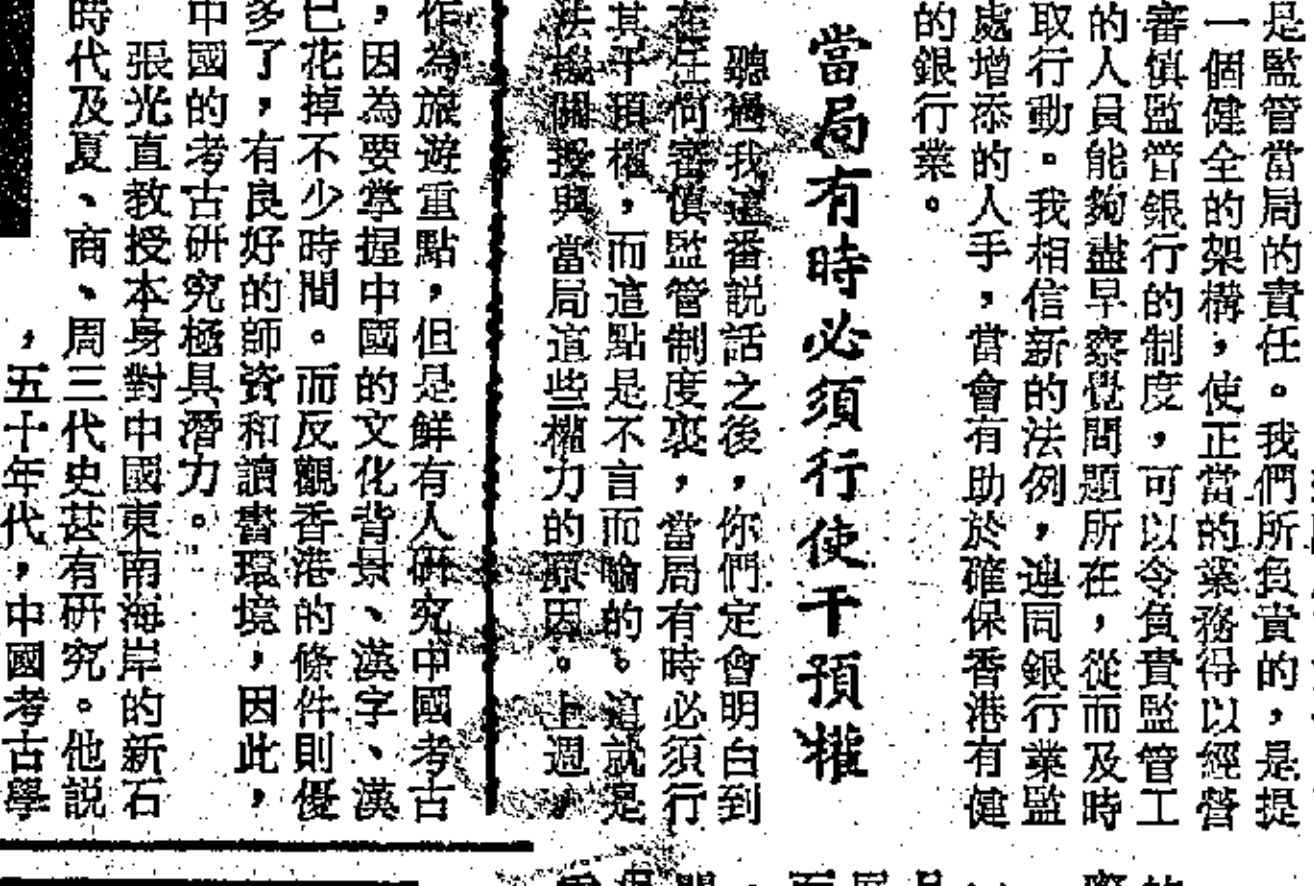 是監管當局的責任。我們所負責的,是提
一個健全的架構,使正當的業務得以經營
審慎監管銀行的制度,可以令負責監管工
的人員能夠盡早察覺問題所在,從而及時
取行動。我相信新的法例,連同銀行業監
處增添的人手,當會有助於確保香港有健
的銀行業。
當局有時必須行使干預權
聽過我這番説話之後,你們定會明白到
在任何審慎監管制度裏,當局有時必須行
其干預權,而這點是不言而喻的。這就是
法機關授與當局這些權力的原因。上週,
作為旅遊重點,但是鮮有人研究中國考古
,因為要掌握中國的文化背景、漢字、漢
已花掉不少時間。而反觀香港的條件則優
多了,有良好的師資和讀書環境,因此,
中國的考古研究極具潛力。
張光直教授本身對中國東南海岸的新石
時代及夏、商、周三代史甚有研究。他説
,五十年代,中國考古學